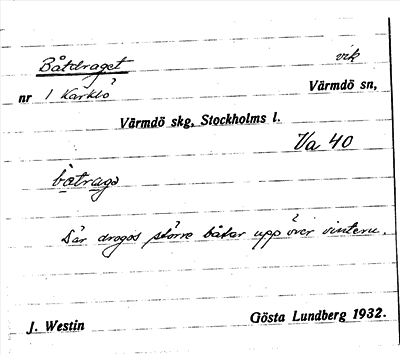 Båtdraget vik
nr 1 Karklö Värmdö sn,
Värmdö skg, Stockholms l.
Va 40
båtrago
Där drogos större båtar upp över vintern.
J. Westin Gösta Lundberg 1932.